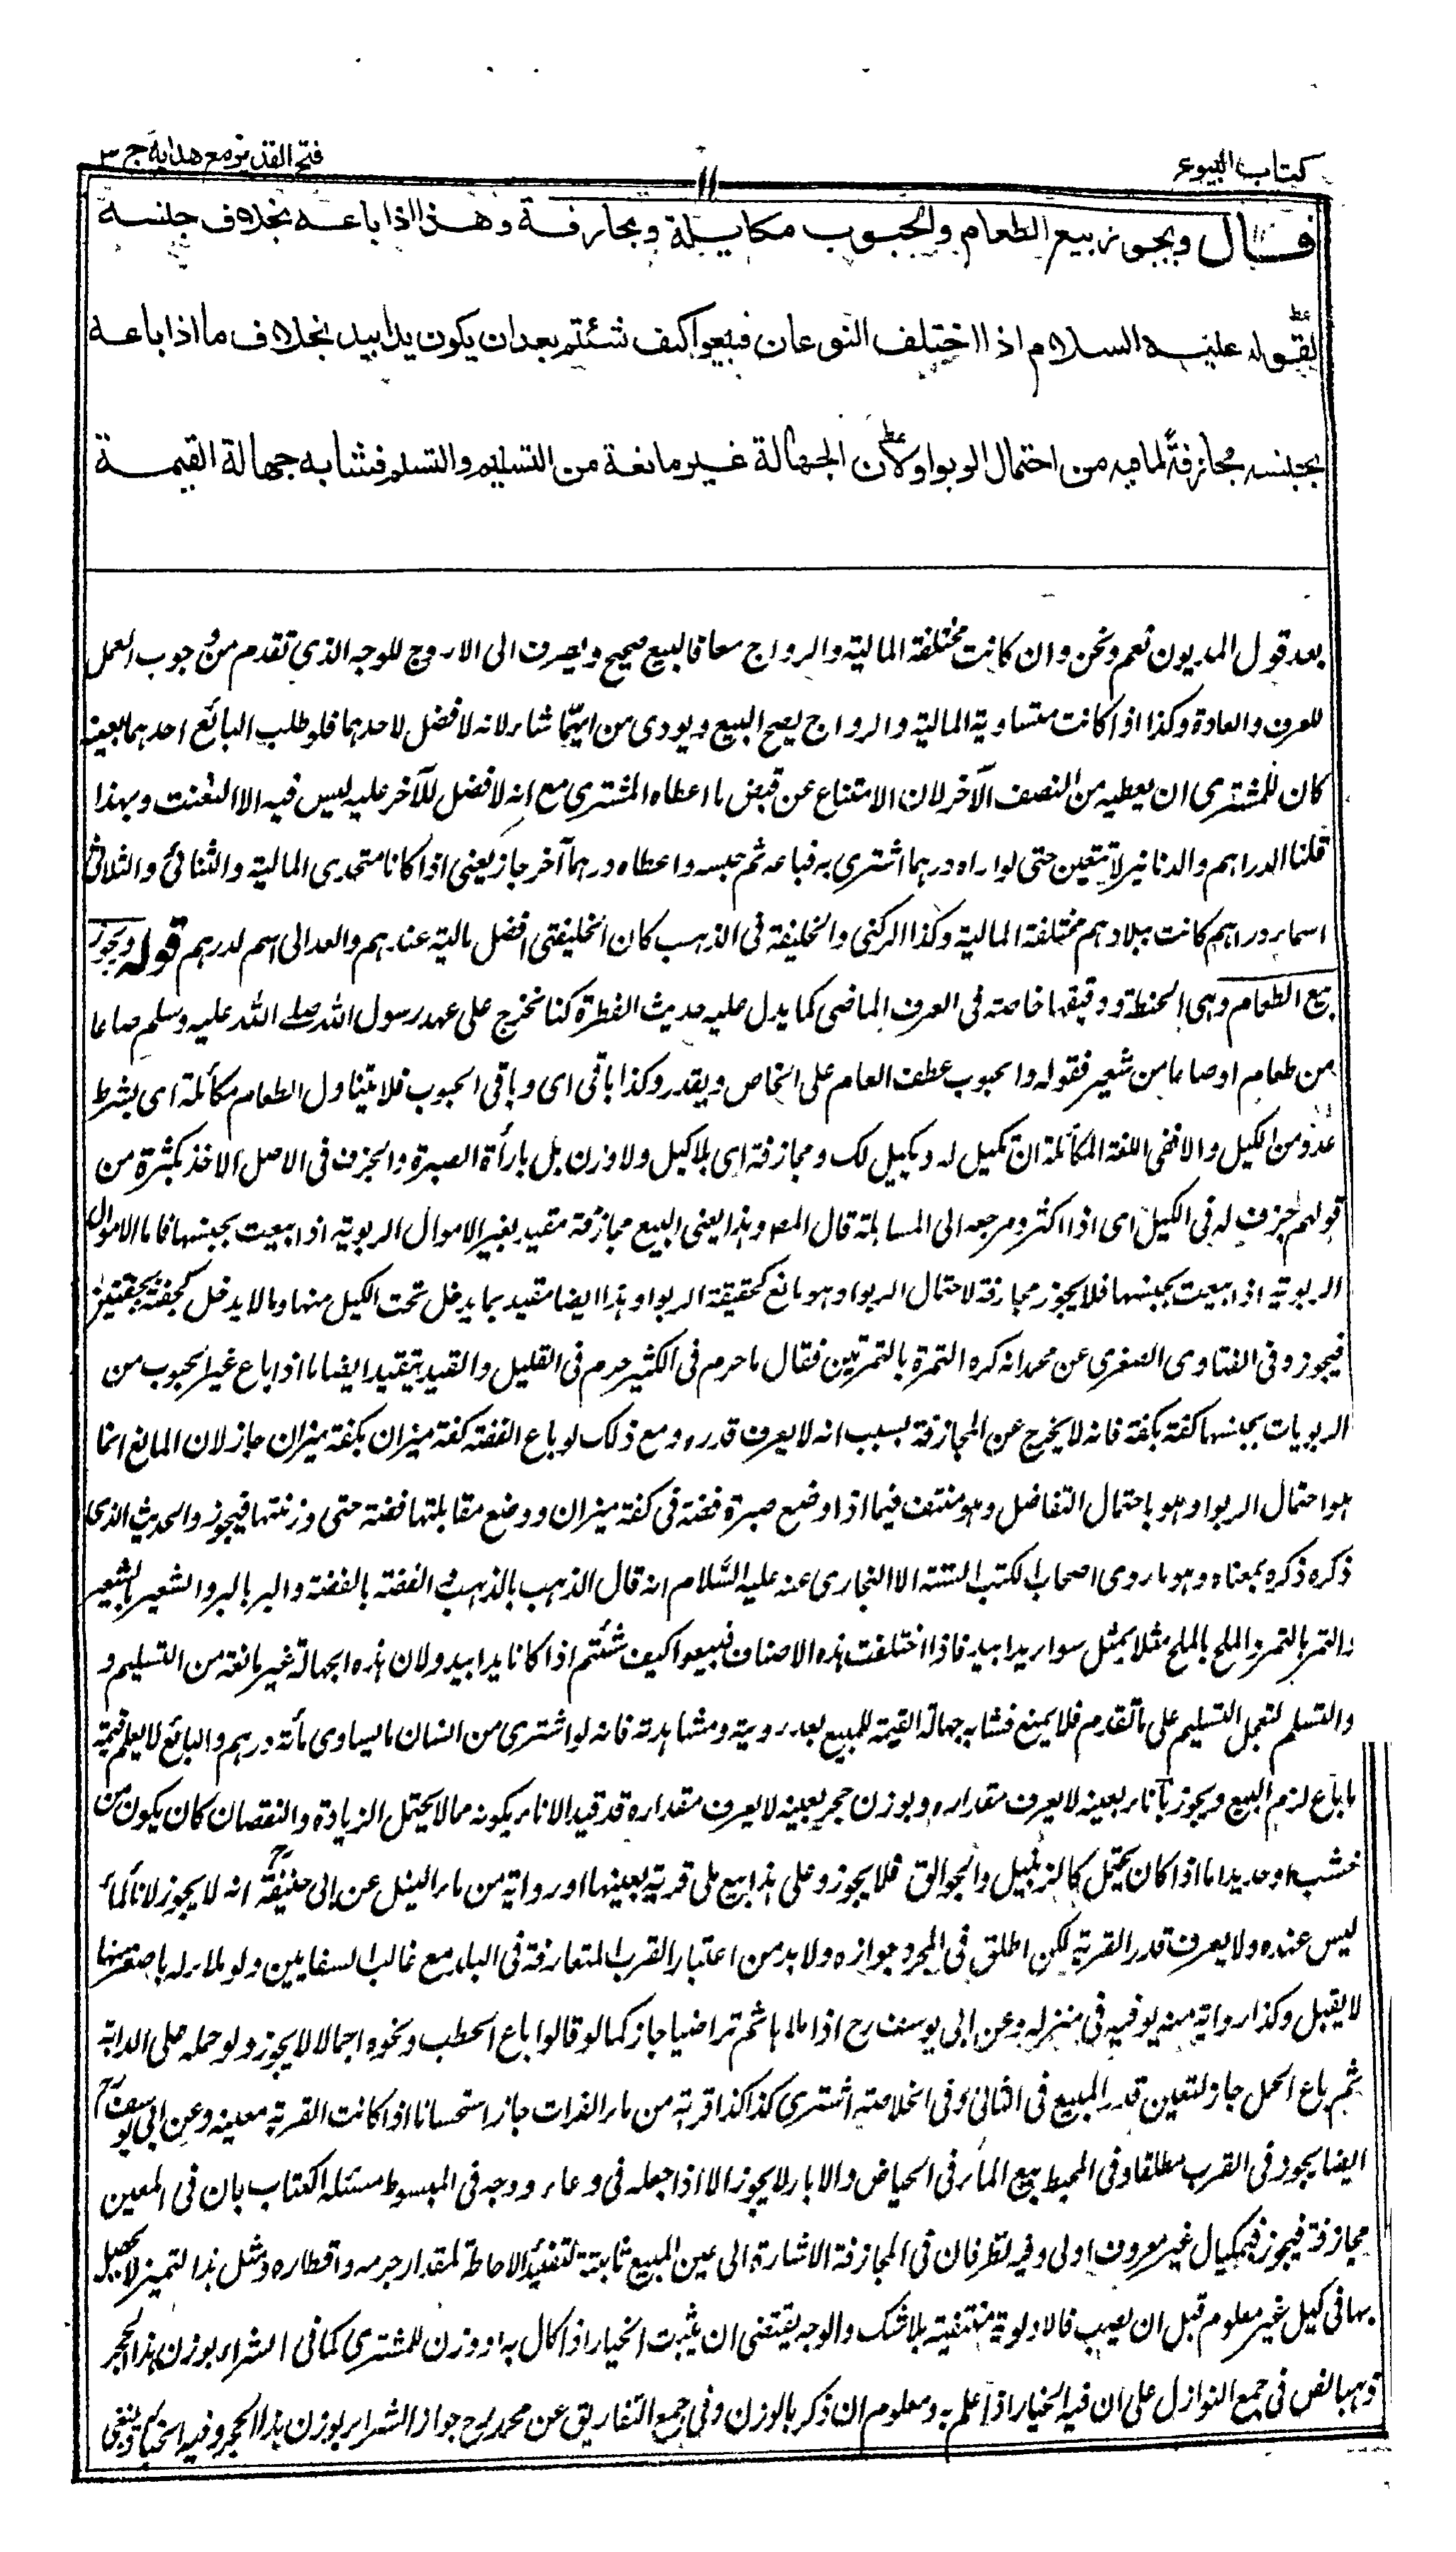 كتاب البيوع
١١
فتح القدير مع هدايه ج ٣
قال ويجوز بيع الطعام والحبوب مكايلة ومجازفة وهذا اذا باعه بخلاف جنسه
لقوله عليه السلام اذا اختلف النوعان فبيعوا كيف شئتم بعد ان يكون يدا بيد بخلاف ما اذا باعه
بجنسه مجازفة لما فيه من احتمال الربوا ولان الجهالة غير مانعة من التسليم والتسلم فشابه جهالة القيمة
بعد قول المديون نعم ونحن وان كانت مختلفة المالية والرواج معا فالبيع صحيح ويصرف الى الاروج للوجه الذي تقدم من وجوب العمل
للعرف والعادة وكذا اذا كانت متساوية المالية والرواج يصح البيع ويودى من ايهما شاء لانه لا فضل لاحدهما فلو طلب البائع احدهما بعينه
كان للمشتري ان يعطيه من النصف الآخر لان الامتناع عن قبض ما اعطاه المشتري مع انه لا فضل للآخر عليه ليس فيه الا التعنت وبهذا
قلنا الدراهم والدنانير لا تتعين حتى لو اراه درهما اشترى به فباعه ثم حبسه واعطاه درهما آخر جاز يعنى اذا كانا متحدى المالية والثنائى والثلاثى
اسماء دراهم كانت ببلادهم مختلفة المالية وكذا الركنى والخليفة فى الذهب كان الخليفتى افضل مالية عندهم والعدالى اسم لدرهم قوله ويجوز
بيع الطعام وهى الحنطة ودقيقها خاصة فى العرف الماضى كما يدل عليه حديث الفطرة كنا نخرج على عهد رسول الله صلى الله عليه وسلم صاعا
من طعام او صاعا من شعير فقوله والحبوب عطف العام على الخاص ويقدر وكذا باقى اى وباقى الحبوب فلا يتناول الطعام مكائلة اى بشرط
عدد من الكيل والا ففى اللغة المكائلة ان تكيل له ويكيل لك ومجازفة اى بلا كيل ولا وزن بل باراة الصبرة والجزف فى الاصل الاخذ بكثرة من
قولهم جزف له فى الكيل اى اذا اكثر ومرجعه الى المساهلة قال المص وهذا يعنى البيع مجازفة مقيد بغير الاموال الربوية اذا بيعت بجنسها فاما الاموال
الربوية اذا بيعت بجنسها فلا يجوز مجازفة لاحتمال الربوا وهو مانع كحقيقة الربوا وهذا ايضا مقيد بما يدخل تحت الكيل منها وما لا يدخل كحفنة بحفنتين
فيجوز وفى الفتاوى الصغرى عن محمد انه كره التمرة بالتمرتين فقال ما حرم فى الكثير حرم فى القليل والقيد يتقيد ايضا ما اذا باع غير الحبوب من
الربويات بجنسها كفة بكفة فانه لا يخرج عن المجازفة بسبب انه لا يعرف قدره ومع ذلك لو باع الفضة كفة ميزان بكفة ميزان جاز لان المانع انما
هو احتمال الربوا وهو باحتمال التفاضل وهو منتف فيما اذا وضع صبرة فضة فى كفة ميزان ووضع مقابلتها فضة حتى وزنتها فيجوز والحديث الذى
ذكره ذكره بمعناه وهو ما روى اصحاب الكتب الستة الا البخارى عنه عليه السلام انه قال الذهب بالذهب والفضة بالفضة والبر بالبر والشعير بالشعير
والتمر بالتمر والملح بالملح مثلا بمثل سواء يدا بيد فاذا اختلفت هذه الاصناف فبيعوا كيف شئتم اذا كانا يدا بيد ولان هذه الجهالة غير مانعة من التسليم و
والتسلم لتعجل التسليم على ما تقدم فلا يمنع فشابه جهالة القيمة للمبيع بعد روية ومشاهدته فانه لو اشترى من انسان ما يساوى مأته درهم والبائع لا يعلم قيمة
ما باع لزم البيع ويجوز بأناء بعينه لا يعرف مقداره وبوزن حجر بعينه لا يعرف مقداره قد قيد الاناء بكونه مما لا يحتمل الزيادة والنقصان كان يكون من
خشب او حديد اما اذا كان يحتمل كالزنبيل والجوالق فلا يجوز وعلى هذا بيع ملى قربة بعينها او رواية من ماء النيل عن ابى حنيفة رح انه لا يجوز لان الماء
ليس عنده ولا يعرف قدر القربة لكن اطلق فى المجرد جوازه ولا بد من اعتبار القرب المتعارفة فى البلد مع غالب السقايين ولو ملاء له باصغر منها
لا يقبل وكذا رواية منه يوفيه فى منزله وعن ابى يوسف رح اذا ملاها ثم تراضيا جاز كما لو قالوا باع الحطب ونحوه اجمالا لا يجوز ولو حمله على الدابة
ثم باع الحمل جاز لتعين قدر المبيع فى الثانى وفى الخلاصة اشترى كذا كذا قربة من ماء الفرات جاز استحسانا اذا كانت القربة معينه وعن ابى يوسف رح
ايضا يجوز فى القرب مطلقا وفى المحيط بيع الماء فى الحياض والابار لا يجوز الا اذا جعله فى وعاء ووجه فى المبسوط مسئلة الكتاب بان فى المعين
مجازفة فيجوز فبمكيال غير معروف اولى وفيه نظر فان فى المجازفة الاشارة الى عين المبيع ثابتة لتفيد الاحاطة لمقدار جرمه واقطاره ومثل هذا التميز لا يحصل
بها فى كيل غير معلوم قبل ان يصب فالاولوية منتفية بلا شك والوجه يقتضى ان يثبت الخيار اذا كال به او وزن للمشترى كما فى الشراء بوزن هذا الحجر
ذهبا نص فى جمع النوازل على ان فيه الخيار اذا علم به ومعلوم ان ذكر بالوزن وفى جمع التفاريق عن محمد رح جواز الشراء بوزن هذا الحجر وفيه الخيار وينبغى